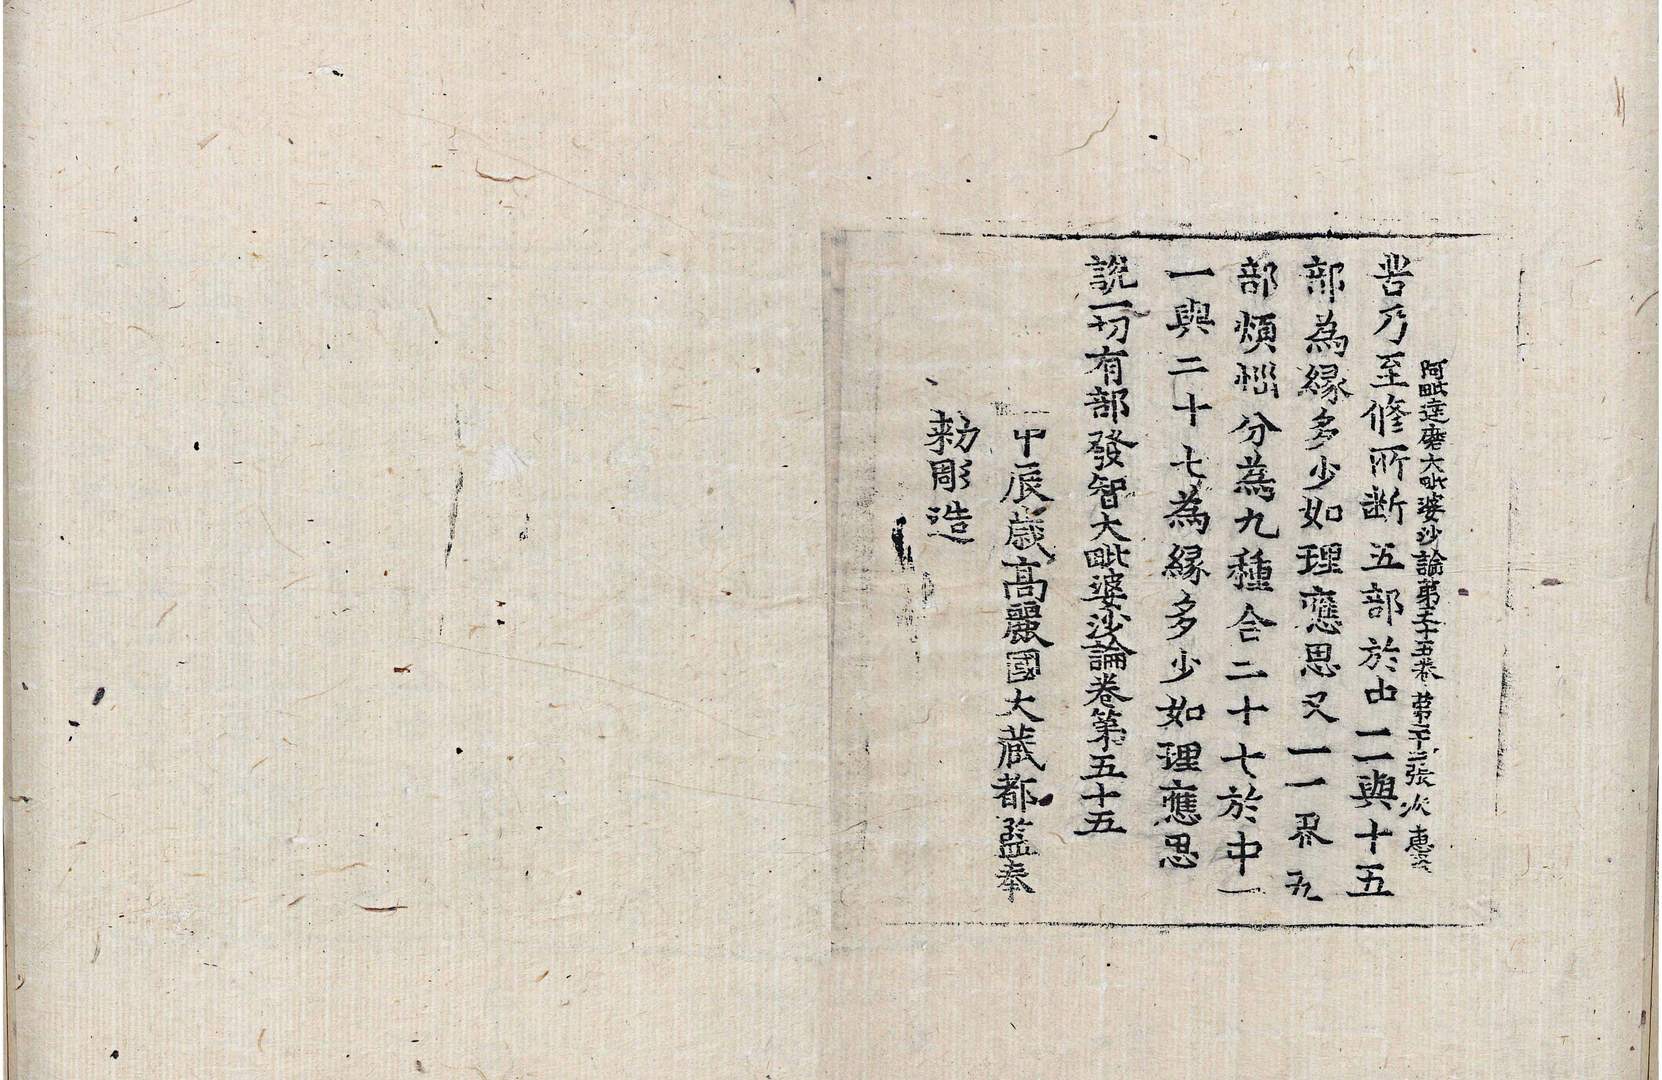 阿毗達磨大毗婆沙論第五十五卷 第二十三張 次
苦乃至修所斷五部於中一一與十五
部為緣多少如理應思又一一界五
部煩惱分為九種合二十七於中一
一與二十七為緣多少如理應思
說一切有部發智大毗婆沙論卷第五十五
甲辰歲高麗國大藏都監奉
勅彫造